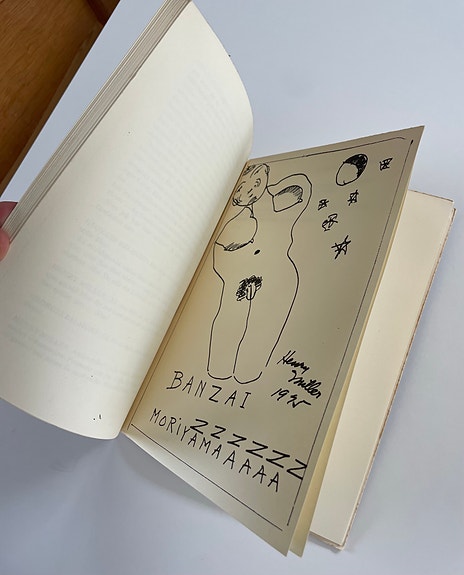 Henry
Miller
BANZAI
ZZZZZZ
MORiYAMAAAAA